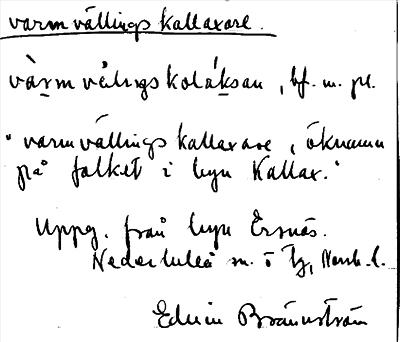 varmvällingskallaxare.
vàrmvälıŋskoláksan, bf. m. pl.
"varmvällingskallaxare, öknamn
på folket i byn Kallax."
Uppg. från byn Ersnäs.
Nederluleå sn. o tg, Norrb. l.
Edvin Brännström